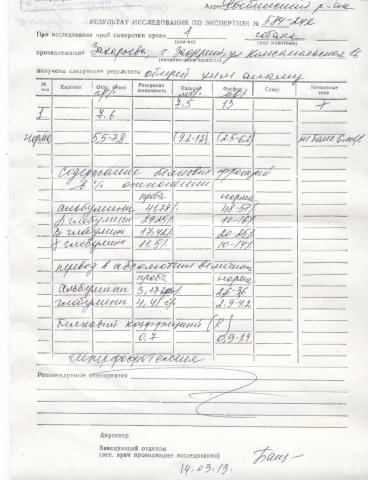 Адрес
РЕЗУЛЬТАТ ИССЛЕДОВАНИЯ ПО ЭКСПЕРТИЗЕ №
При исследовании проб сыворотки крови 1 собака
(кол-во) (вид животных)
принадлежащий Захарова, г.
получены следующие результаты общий хим анализ
№ п-п Каротин Общ. белок Резервная щелочность Кальций Фосфор Сахар Кетоновые тела
7.5 13 +
1. 7.6
норма 5,5-7,8 (9.2-12) (2.5-6.2)
Содержание белковых фракций
в % отношении
проба норма
альбумины 48-57%
глобулины 10-18%
β глобулины 17.42% 20-25%
γ глобулины 11.5% 10-14%
перевод в абсолютные величины
проба норма
альбумины 2.6-36
глобулины 4,41 г% 2.9-42
Белковый коэффициент (К)
0,7
Рекомендуемые мероприятия
Директор
Заведующий отделом
(вет. врач проводивший исследования)
14.03.13.